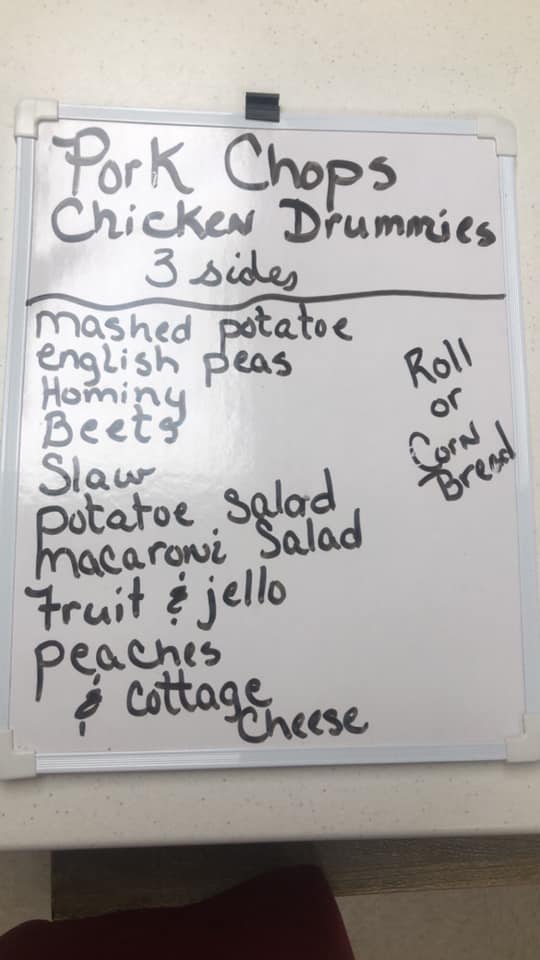 Pork Chops
Chicken Drummies
3 sides
mashed potatoe
english peas
Hominy
Beets
Slaw
potatoe Salad
macaroni Salad
Fruit & jello
peaches
& cottage
cheese
Roll
or
Corn
Bread